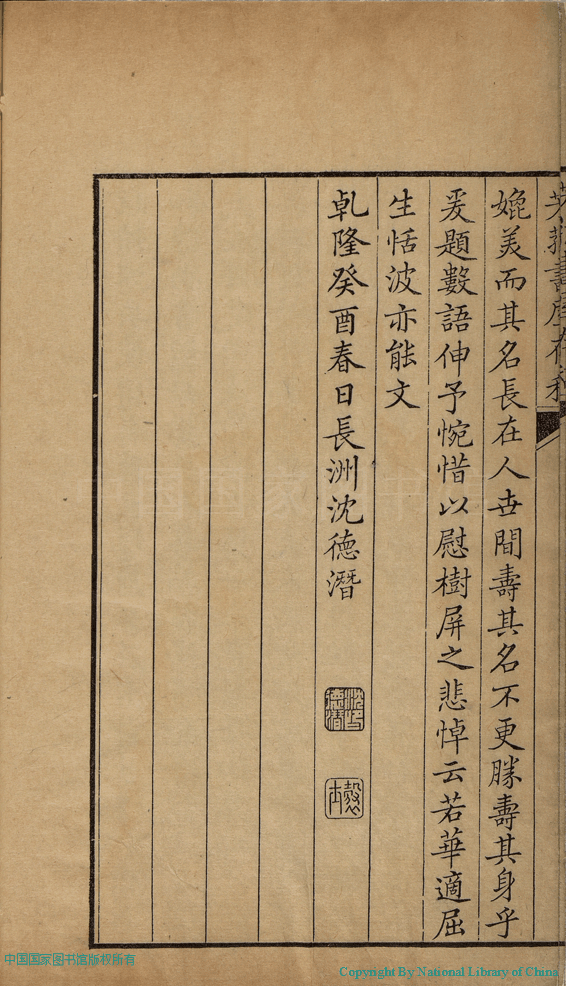 書屋存稿
媲美而其名長在人世間壽其名不更勝壽其身乎
爰題數語伸予惋惜以慰樹屏之悲悼云若華適屈
生恬波亦能文
乹隆癸酉春日長洲沈德潛
沈德潛印
中国国家图书馆
中国国家图书馆版权所有
Copyright By National Library of China